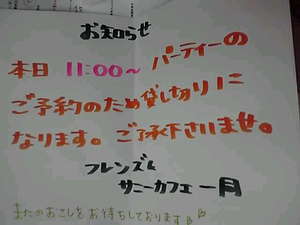 お知らせ
本日 11:00～ パーティーの
ご予約のため貸し切りに
なります。ご了承下さいませ。
フレンズ&
サニーカフェ一月
またのおこしをお待ちしております